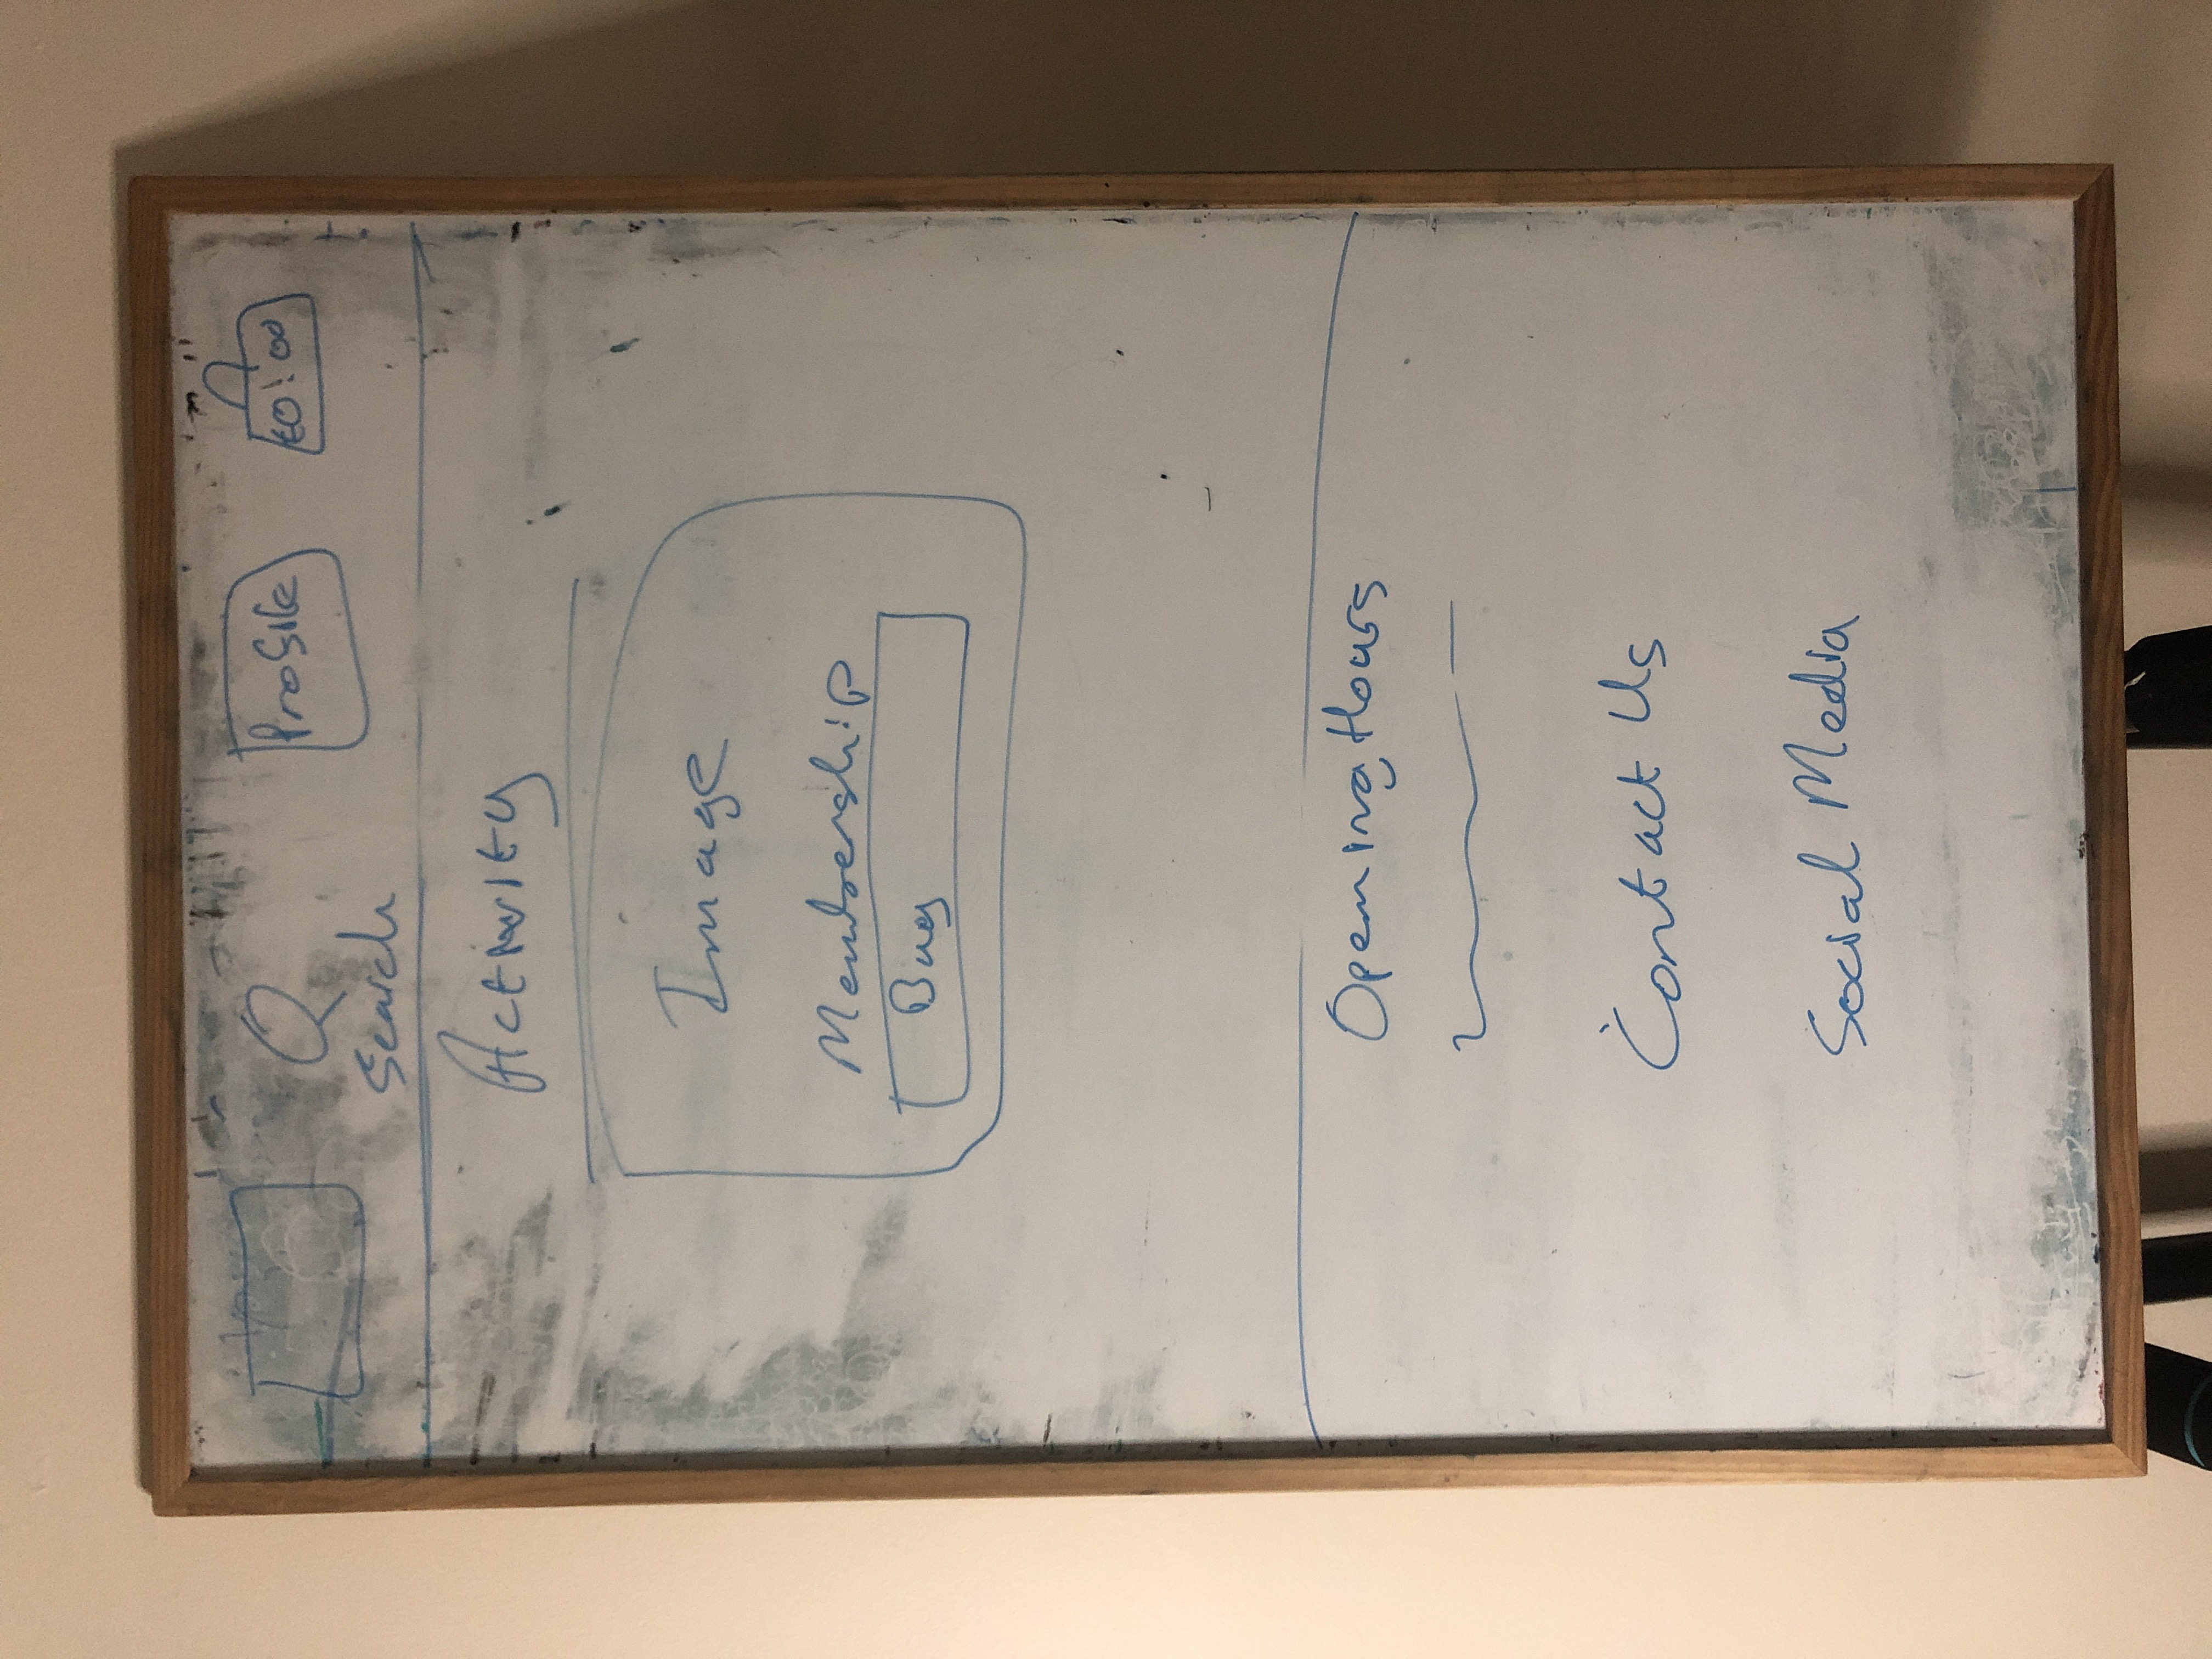 Profile
£0:00
Search
Activity
Image
Membership
Buy
Opening Hours
Contact Us
Social Media